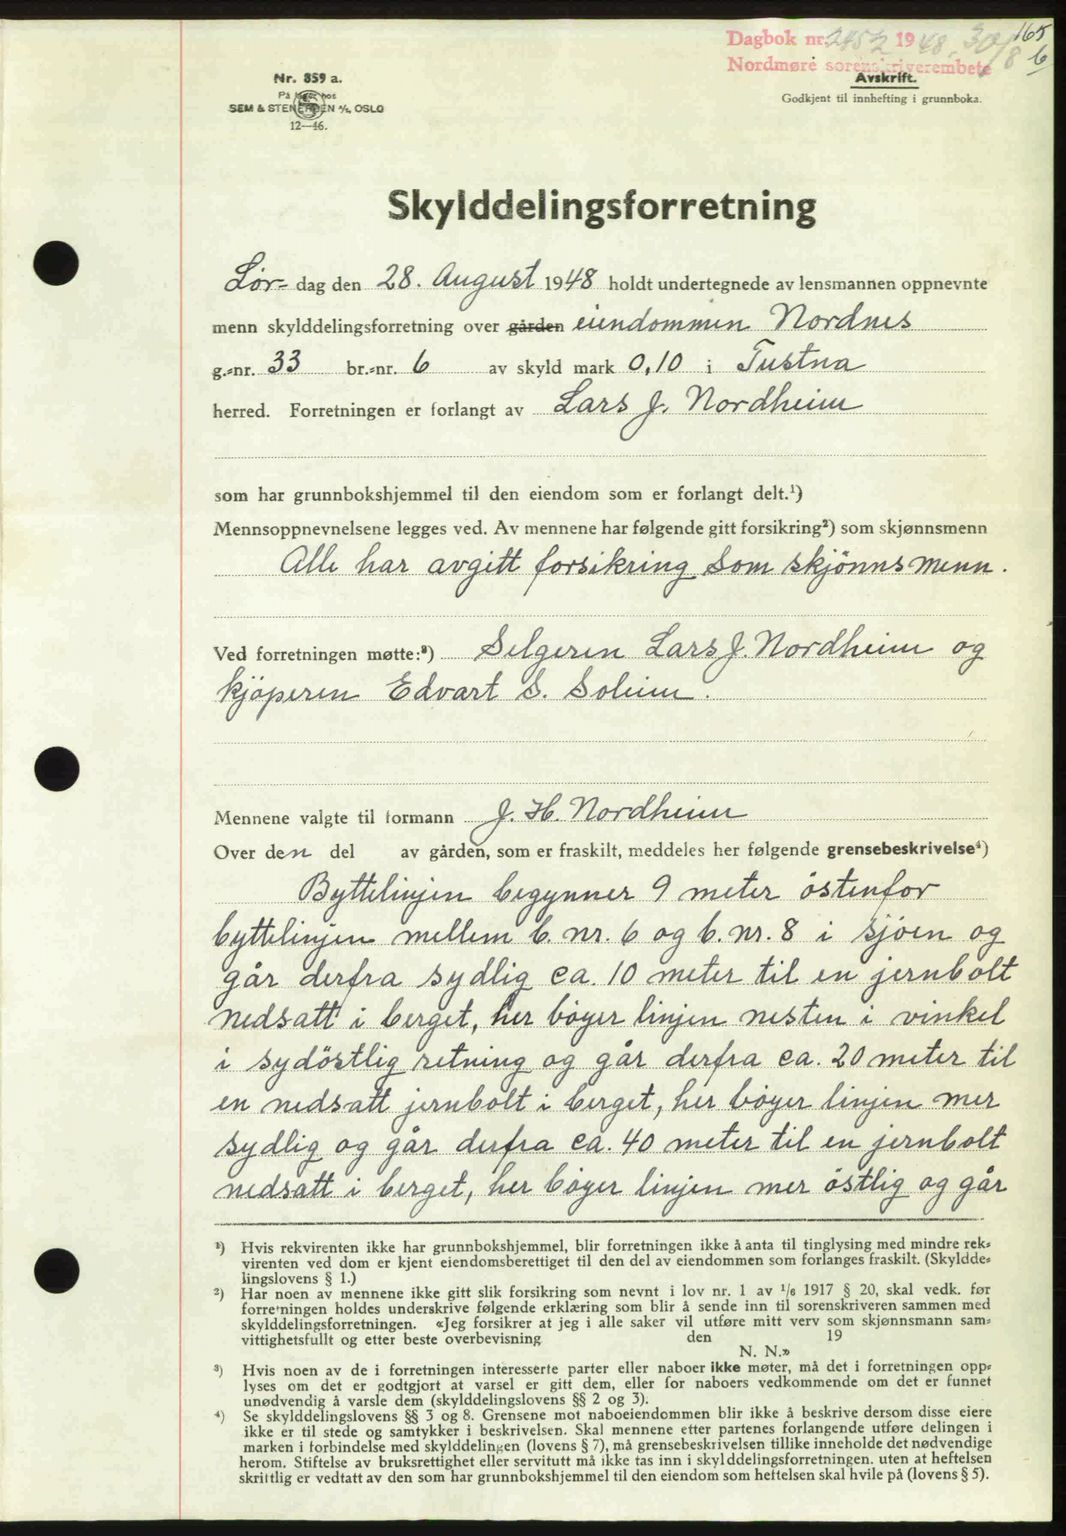 Dagbok nr. 2452 1948. 30/8 165
Nordmøre sorenskriverembete 6
Avskrift.
Godkjent til innhefting i grunnboka.
Nr. 859 a.
På lager hos
SEM & STENERSEN A/S, OSLO
12—46.
Skylddelingsforretning
Lør- dag den 28. August 1948 holdt undertegnede av lensmannen oppnevnte
menn skylddelingsforretning over gården eiendommen Nordnes
g.-nr. 33 br.-nr. 6 av skyld mark 0,10 i Tustna
herred. Forretningen er forlangt av Lars J. Nordheim
som har grunnbokshjemmel til den eiendom som er forlangt delt.¹)
Mennsoppnevnelsene legges ved. Av mennene har følgende gitt forsikring²) som skjønnsmenn
Alle har avgitt forsikring som skjönnsmenn.
Ved forretningen møtte:³) Selgeren Lars J. Nordheim og
kjöperen Edvart S. Solem.
Mennene valgte til formann J. H. Nordheim
Over den del av gården, som er fraskilt, meddeles her følgende grensebeskrivelse⁴)
Byttelinjen begynner 9 meter östenfor
byttelinjen mellem b. nr. 6 og b. nr. 8 i sjöen og
går derfra sydlig ca. 10 meter til en jernbolt
nedsatt i berget, her böyer linjen nesten i vinkel
i sydöstlig retning og går derfra ca. 20 meter til
en nedsatt jernbolt i berget, her böyer linjen mer
sydlig og går derfra ca. 40 meter til en jernbolt
nedsatt i berget, her böyer linjen mer östlig og går
¹) Hvis rekvirenten ikke har grunnbokshjemmel, blir forretningen ikke å anta til tinglysing med mindre rek-
virenten ved dom er kjent eiendomsberettiget til den del av eiendommen som forlanges fraskilt. (Skyldde-
lingslovens § 1.)
²) Har noen av mennene ikke gitt slik forsikring som nevnt i lov nr. 1 av 1/6 1917 § 20, skal vedk. før
forretningen holdes underskrive følgende erklæring som blir å sende inn til sorenskriveren sammen med
skylddelingsforretningen. «Jeg forsikrer at jeg i alle saker vil utføre mitt verv som skjønnsmann sam-
vittighetsfullt og etter beste overbevisning den 19
N. N.»
³) Hvis noen av de i forretningen interesserte parter eller naboer ikke møter, må det i forretningen opp-
lyses om det er godtgjort at varsel er gitt dem, eller for naboers vedkommende om det er funnet
unødvendig å varsle dem (skylddelingslovens §§ 2 og 3).
⁴) Se skylddelingslovens §§ 3 og 8. Grensene mot naboeiendommen blir ikke å beskrive dersom disse eiere
ikke er til stede og samtykker i beskrivelsen. Skal mennene etter partenes forlangende utføre delingen i
marken i forbindelse med skylddelingen (lovens § 7), må grensebeskrivelsen tillike inneholde det nødvendige
herom. Stiftelse av bruksrettighet eller servitutt må ikke tas inn i skylddelingsforretningen, uten at heftelsen
skriftlig er vedtatt av den som har grunnbokshjemmel til den eiendom som heftelsen skal hvile på (lovens § 5).